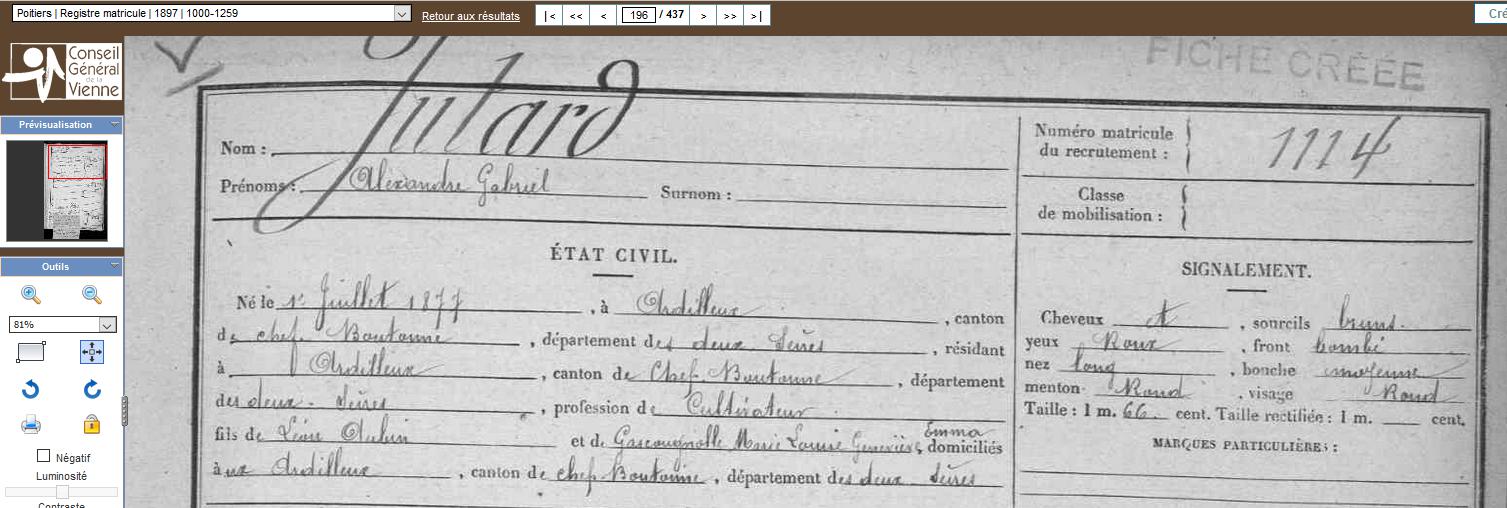 Poitiers | Registre matricule | 1897 | 1000-1259
Retour aux résultats
|< << < 196 / 437 > >> >|
Cré
Conseil
Général
de la
Vienne
Prévisualisation
Outils
81%
Négatif
Luminosité
Contraste
FICHE CRÉÉE
Nom : Jutard
Prénoms : Alexandre Gabriel Surnom :
Numéro matricule
du recrutement : 1114
Classe
de mobilisation :
ÉTAT CIVIL.
Né le 1er Juillet 1877, à Ardilleux, canton
de chef Boutonne, département des deux Sèvres, résidant
à Ardilleux, canton de Chef-Boutonne, département
des deux-Sèvres, profession de Cultivateur
fils de Léon Aubin et de Gascougnolle Marie Louise Geneviève Emma, domiciliés
à ux Ardilleux, canton de chef-Boutonne, département des deux Sèvres
SIGNALEMENT.
Cheveux et, sourcils bruns.
yeux Roux, front bombé
nez long, bouche moyenne
menton Rond, visage Rond
Taille : 1 m. 66 cent. Taille rectifiée : 1 m. cent.
MARQUES PARTICULIÈRES :